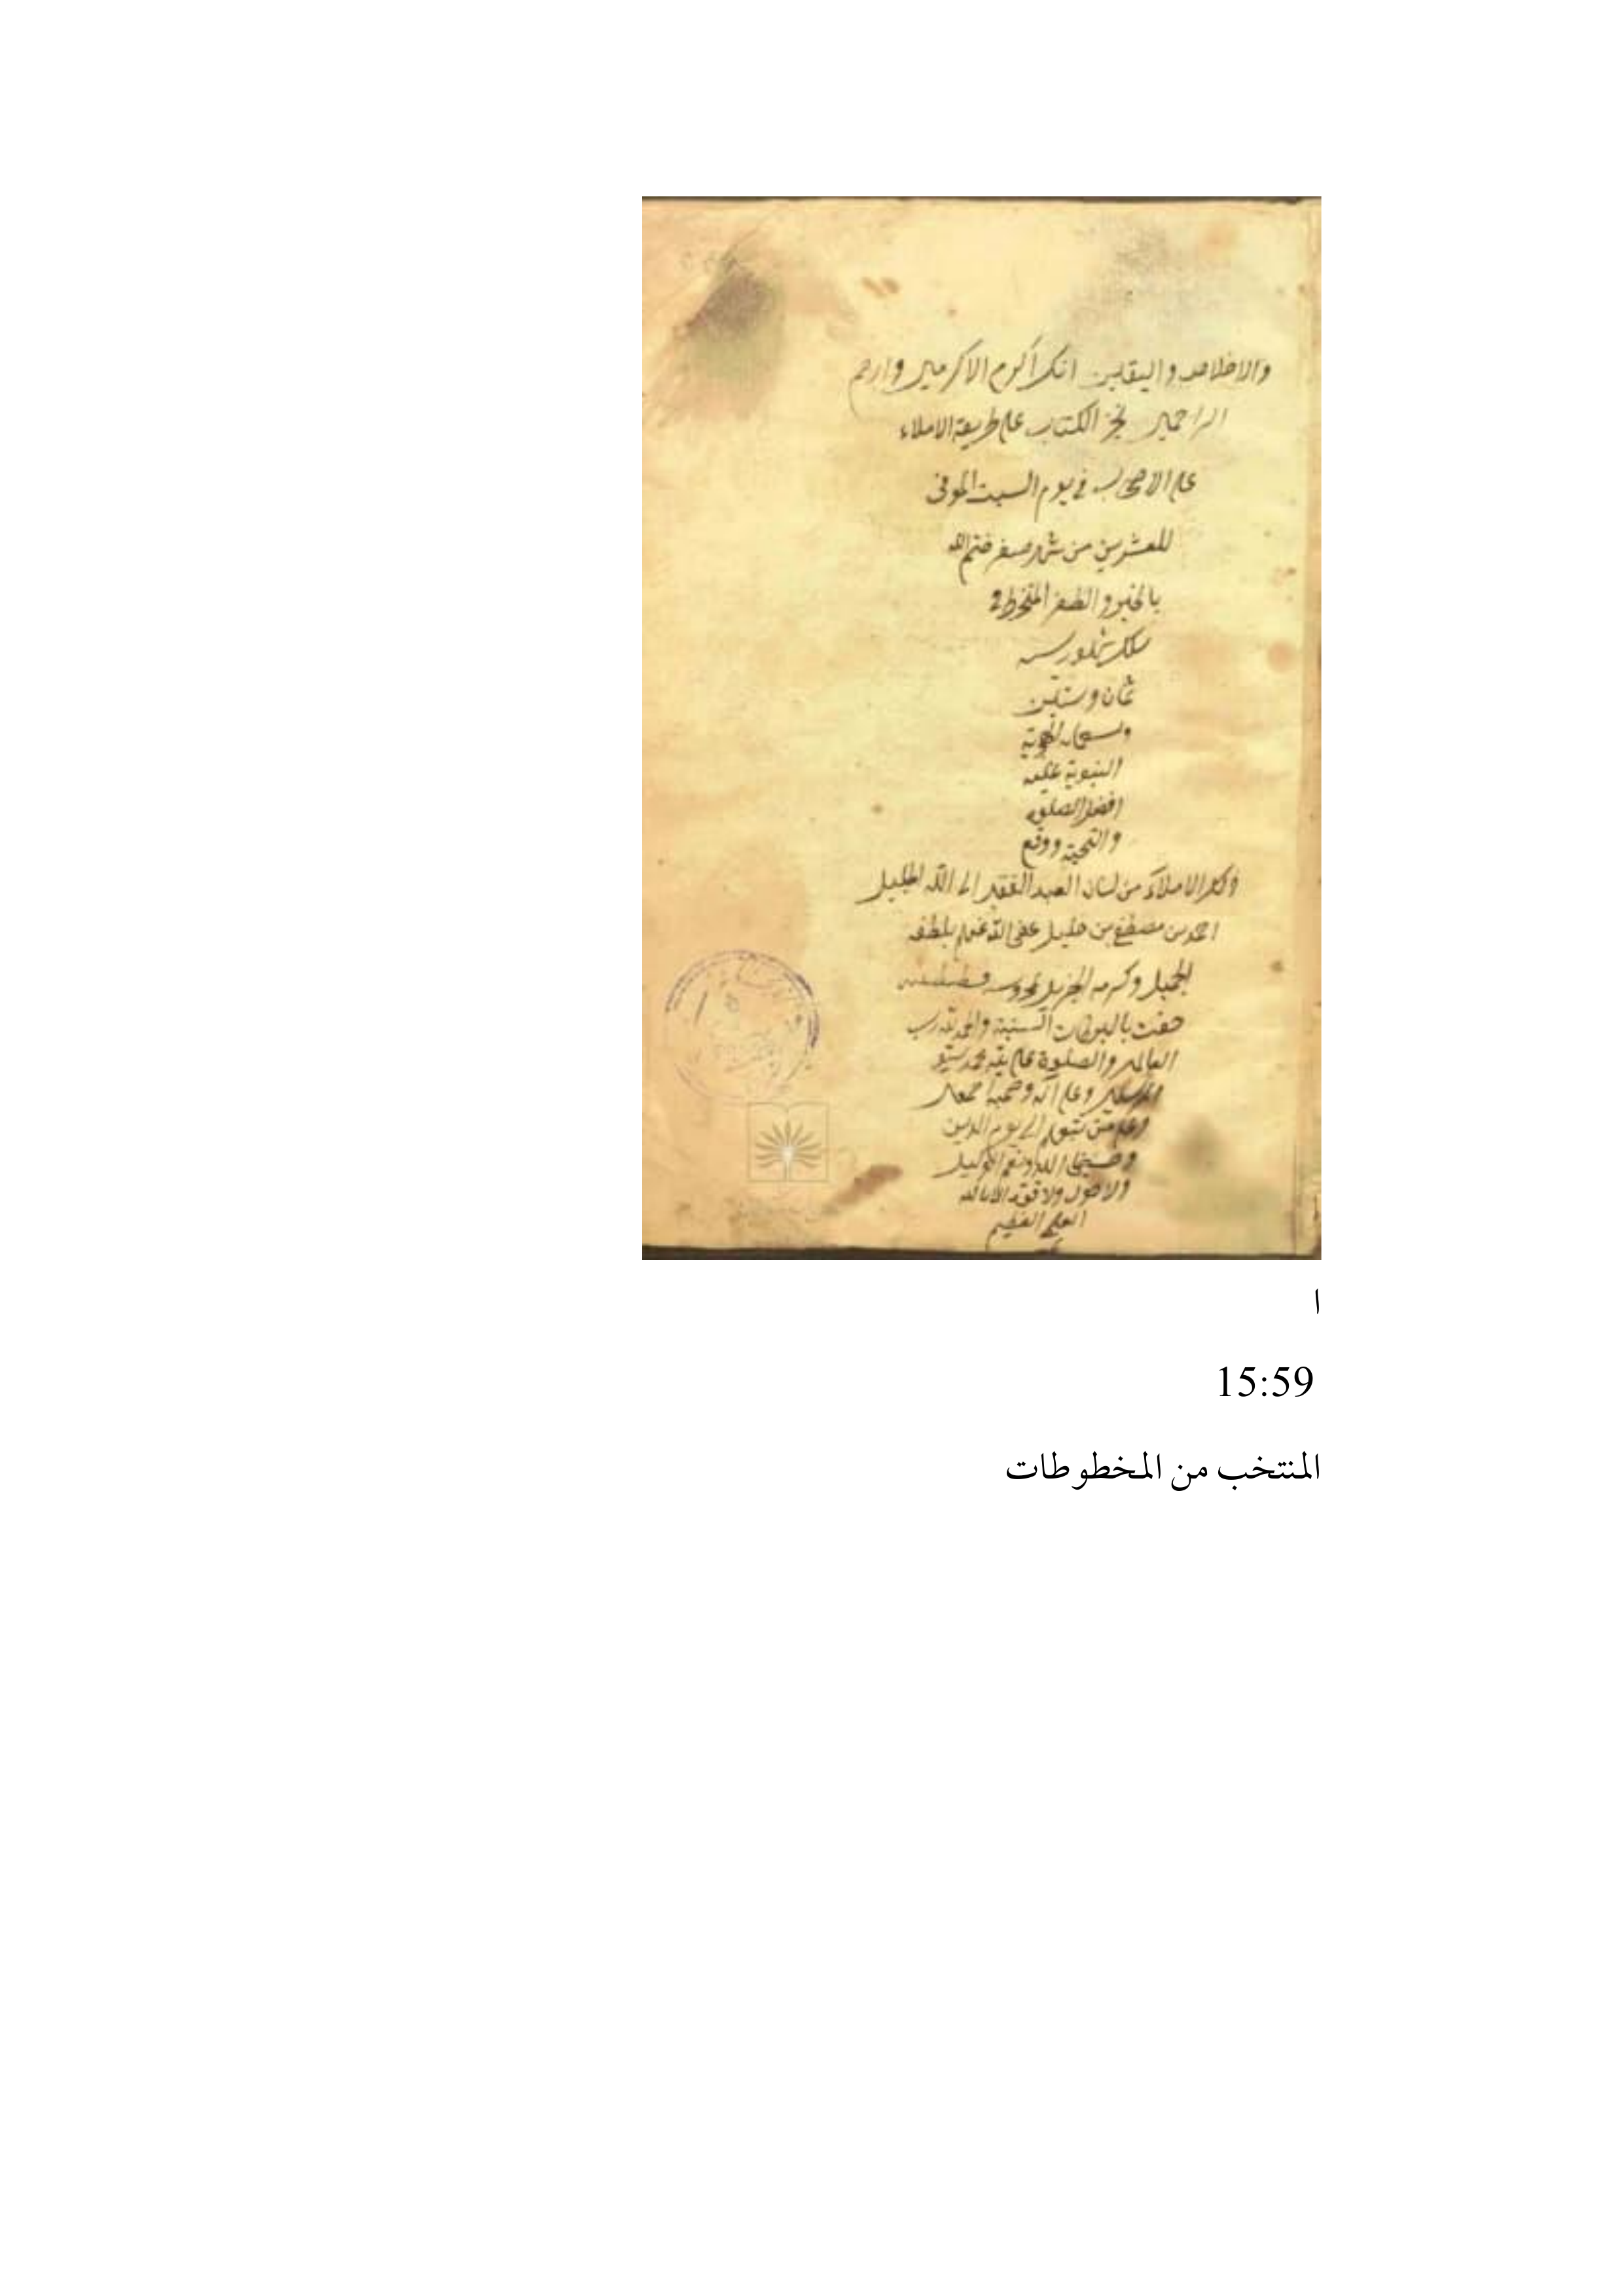 والاخلاص واليقين انك اكرم الاكرمين وارحم
الراحمين نجز الكتاب على طريقة الاملاء
على الاصحاب في يوم السبت الموفى
للعشرين من شهر صفر ختم الله
بالخير والظفر المنخرط في
سلك شهور سنة
ثمان وستين
وتسعمائة
النبوية عليه
افضل الصلوة
والتحية ووقع
ذلك الاملاء من لسان العبد الفقير الى الله الجليل
احمد بن مصطفى بن خليل عفى الله عنهم بلطفه
الجميل وكرمه الجزيل قسطنطينية
حفت بالبركات السنية والحمد لله رب
العالمين والصلوة على نبيه محمد سيد
المرسلين وعلى آله وصحبه اجمعين
وعلى من تبعهم الى يوم الدين
وحسبنا الله ونعم الوكيل
ولا حول ولا قوة الا بالله
العلي العظيم
ا
15:59
المنتخب من المخطوطات